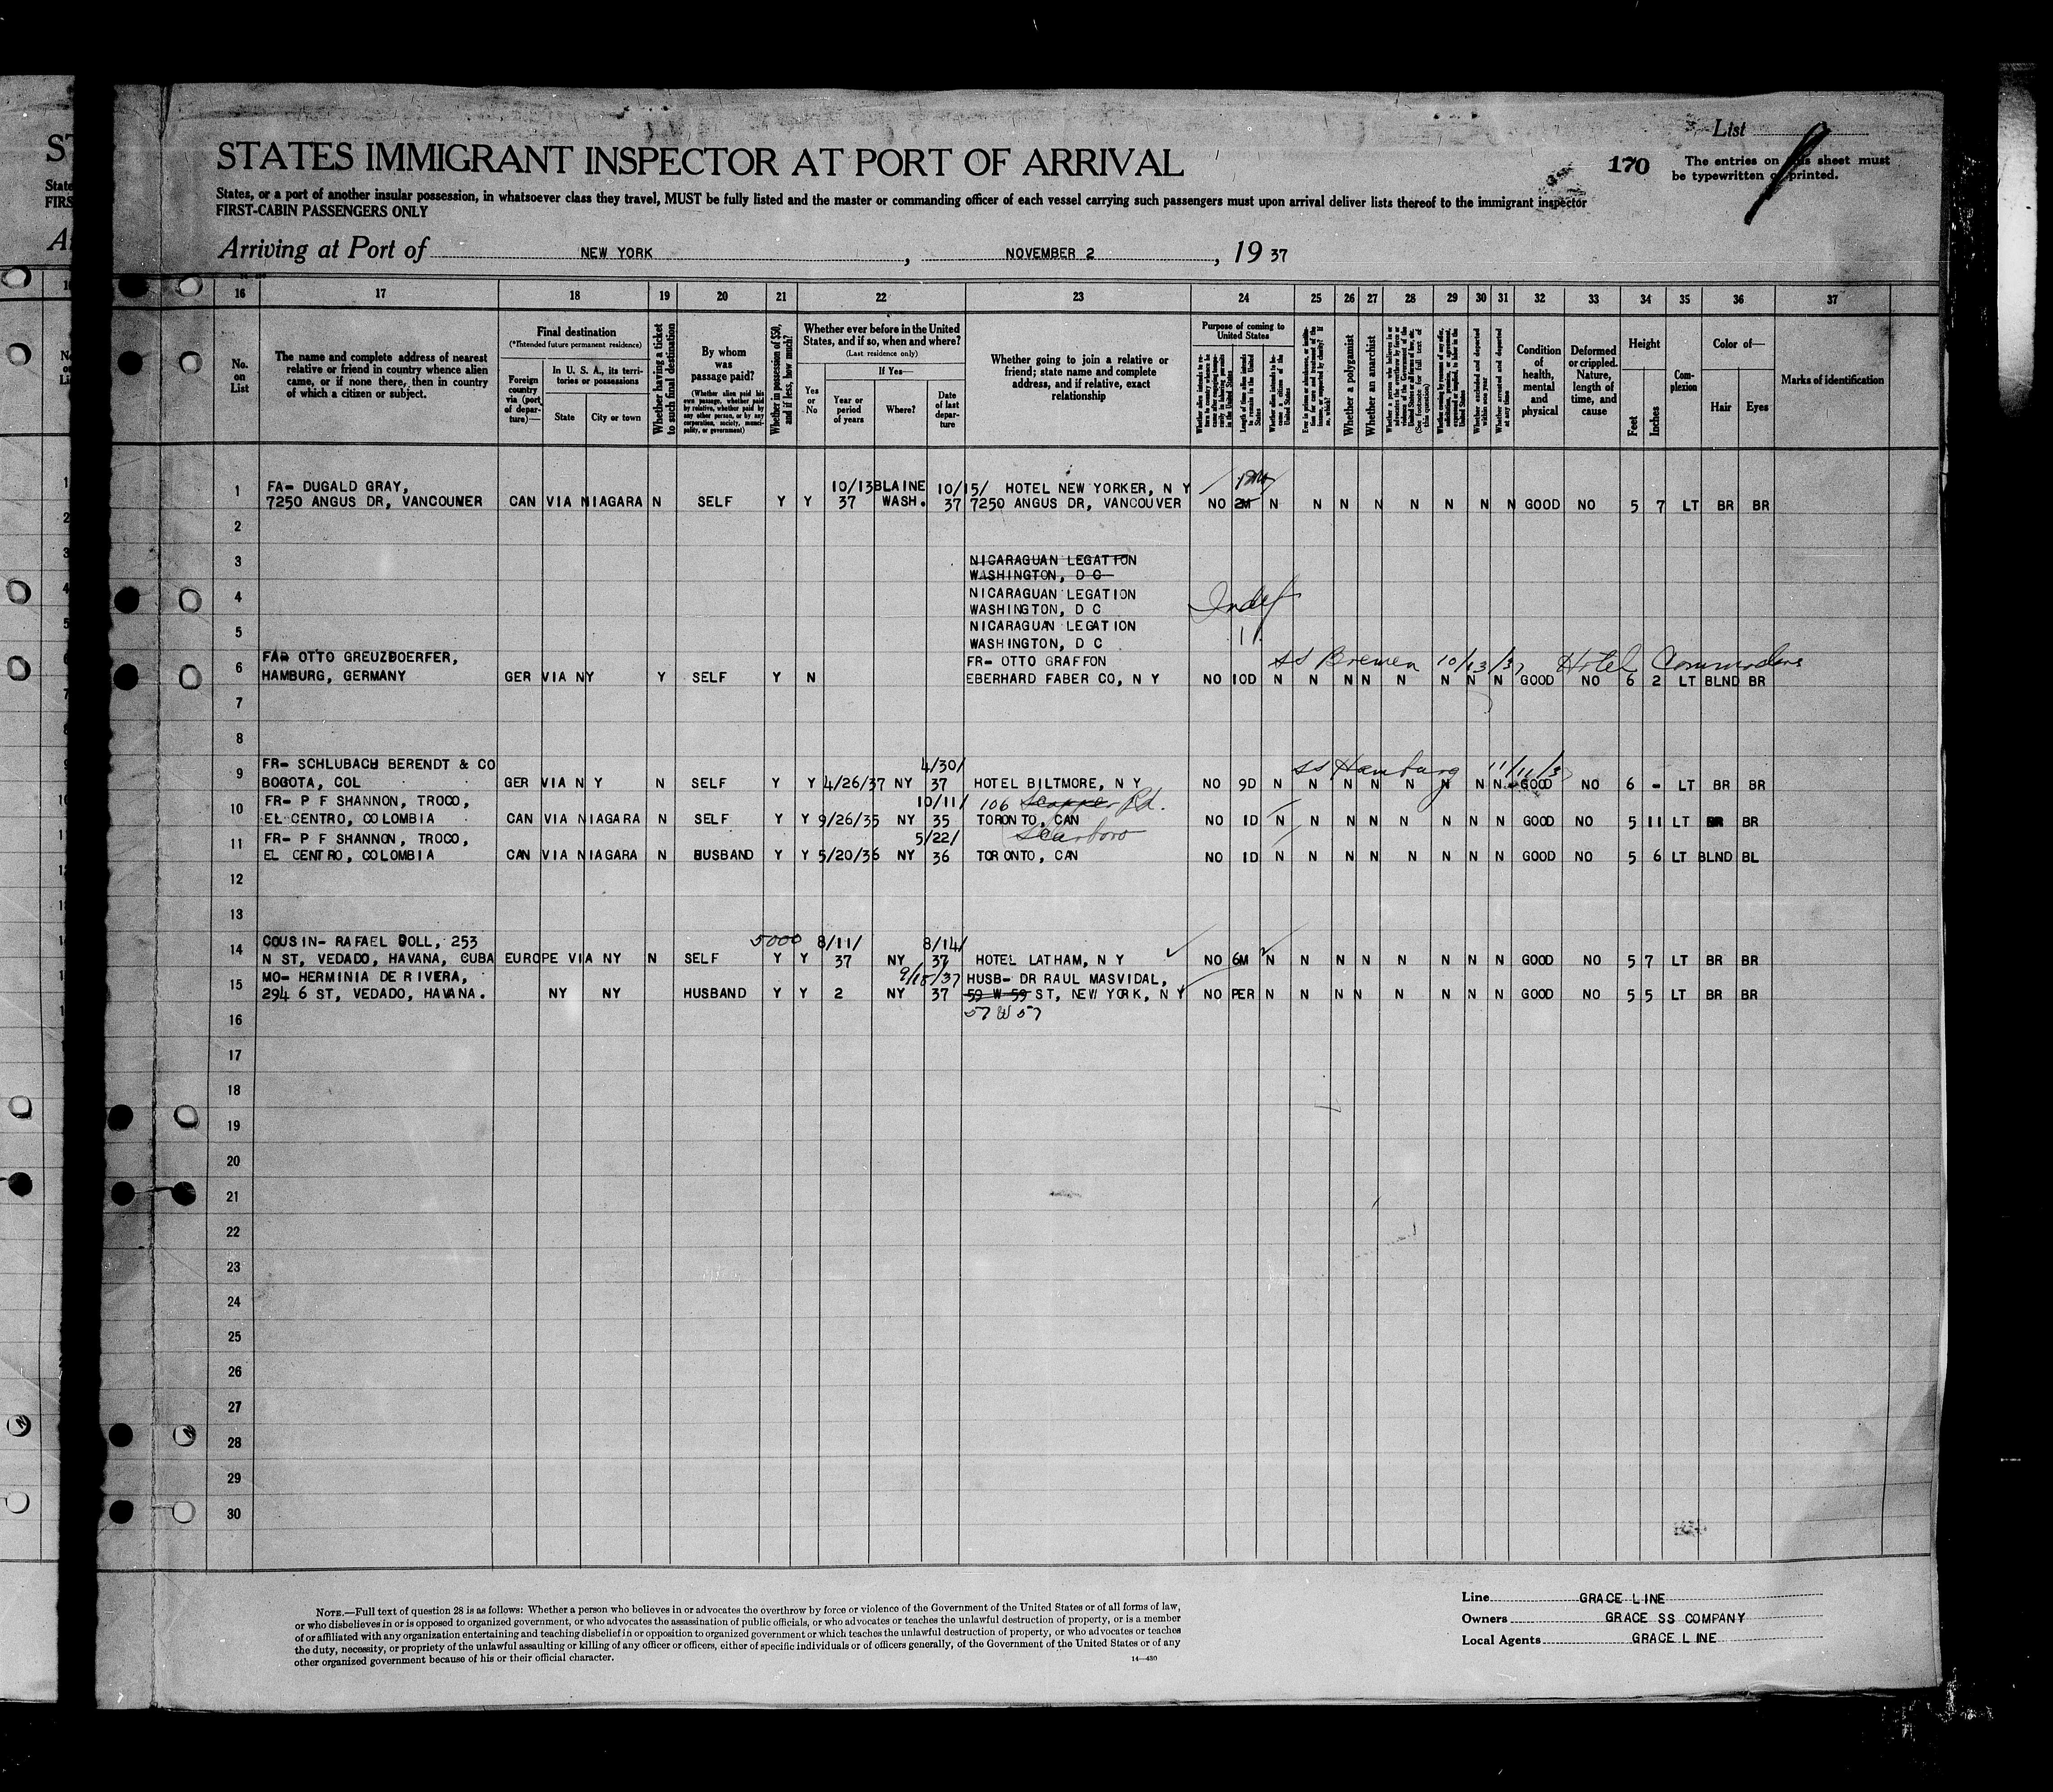 List
STATES IMMIGRANT INSPECTOR AT PORT OF ARRIVAL
170
The entries on this sheet must
be typewritten or printed.
States, or a port of another insular possession, in whatsoever class they travel, MUST be fully listed and the master or commanding officer of each vessel carrying such passengers must upon arrival deliver lists thereof to the immigrant inspector
FIRST-CABIN PASSENGERS ONLY
Arriving at Port of NEW YORK, NOVEMBER 2, 19 37
16 17 18 19 20 21 22 23 24 25 26 27 28 29 30 31 32 33 34 35 36 37
No. on List
The name and complete address of nearest
relative or friend in country whence alien
came, or if none there, then in country
of which a citizen or subject.
Final destination
(*Intended future permanent residence)
Foreign country via (port of departure)—
In U. S. A., its territories or possessions
State
City or town
Whether having a ticket to such final destination
By whom was passage paid?
(Whether alien paid his own passage, whether paid by relative, whether paid by any other person, or by any corporation, society, municipality, or government)
Whether in possession of $50, and if less, how much?
Whether ever before in the United
States, and if so, when and where?
(Last residence only)
Yes or No
If Yes—
Year or period of years
Where?
Date of last departure
Whether going to join a relative or
friend; state name and complete
address, and if relative, exact
relationship
Purpose of coming to United States
Length of time alien intends to remain in the United States
Whether alien intends to become a citizen of the United States
Whether a polygamist
Whether an anarchist
Whether excluded and deported within one year
Whether arrested and deported at any time
Condition of health, mental and physical
Deformed or crippled. Nature, length of time, and cause
Height
Feet
Inches
Complexion
Color of—
Hair
Eyes
Marks of identification
1 FA- DUGALD GRAY, 10/13 BLAINE 10/15/ HOTEL NEW YORKER, N Y
7250 ANGUS DR, VANCOUVER CAN VIA NIAGARA N SELF Y Y 37 WASH. 37 7250 ANGUS DR, VANCOUVER NO 2M N N N N N N N N GOOD NO 5 7 LT BR BR
2
3 NICARAGUAN LEGATION
WASHINGTON, D C
4 NICARAGUAN LEGATION Indef
WASHINGTON, D C
5 NICARAGUAN LEGATION
WASHINGTON, D C
6 FAR OTTO GREUZBOERFER, FR- OTTO GRAFFON SS Bremen 10/13/37 Hotel Commodore
HAMBURG, GERMANY GER VIA NY Y SELF Y N EBERHARD FABER CO, N Y NO 10D N N N N N N N N GOOD NO 6 2 LT BLND BR
7
8
9 FR- SCHLUBACH BERENDT & CO 4/30/ SS Hamburg
BOGOTA, COL GER VIA N Y N SELF Y Y 4/26/37 NY 37 HOTEL BILTMORE, N Y NO 9D N N N N N N N N GOOD NO 6 - LT BR BR
10 FR- P F SHANNON, TROCO, 10/11/ 106 Rd.
EL CENTRO, COLOMBIA CAN VIA NIAGARA N SELF Y Y 9/26/35 NY 35 TORONTO, CAN NO 1D N N N N N N N N GOOD NO 5 11 LT BR BR
11 FR- P F SHANNON, TROCO, 5/22/ Scarboro
EL CENTRO, COLOMBIA CAN VIA NIAGARA N HUSBAND Y Y 5/20/36 NY 36 TORONTO, CAN NO 1D N N N N N N N N GOOD NO 5 6 LT BLND BL
12
13
14 COUSIN- RAFAEL DOLL, 253 5000 8/11/ 8/14/
N ST, VEDADO, HAVANA, CUBA EUROPE VIA NY N SELF Y Y 37 NY 37 HOTEL LATHAM, N Y NO 6M N N N N N N N N GOOD NO 5 7 LT BR BR
15 MO- HERMINIA DE RIVERA, 9/15/37 HUSB- DR RAUL MASVIDAL,
294 6 ST, VEDADO, HAVANA. NY NY HUSBAND Y Y 2 NY 37 59 W 59 ST, NEW YORK, N Y NO PER N N N N N N N N GOOD NO 5 5 LT BR BR
57 W 57
16
17
18
19
20
21
22
23
24
25
26
27
28
29
30
NOTE.—Full text of question 28 is as follows: Whether a person who believes in or advocates the overthrow by force or violence of the Government of the United States or of all forms of law,
or who disbelieves in or is opposed to organized government, or who advocates the assassination of public officials, or who advocates or teaches the unlawful destruction of property, or is a member
of or affiliated with any organization entertaining and teaching disbelief in or opposition to organized government or which teaches the unlawful destruction of property, or who advocates or teaches
the duty, necessity, or propriety of the unlawful assaulting or killing of any officer or officers, either of specific individuals or of officers generally, of the Government of the United States or of any
other organized government because of his or their official character.
14—430
Line GRACE LINE
Owners GRACE SS COMPANY
Local Agents GRACE LINE